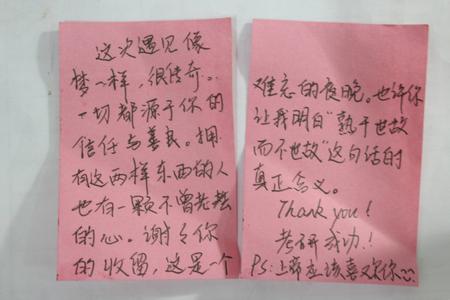 这次遇见像
梦一样，很传奇。
一切都源于你的
信任与善良。拥
有这两样东西的人
也有一颗不曾老去
的心。谢谢你
的收留，这是一个
难忘的夜晚。也许你
让我明白“熟于世故
而不世故”这句话的
真正含义。
Thank you!
考研成功!!
PS:上帝应该喜欢你